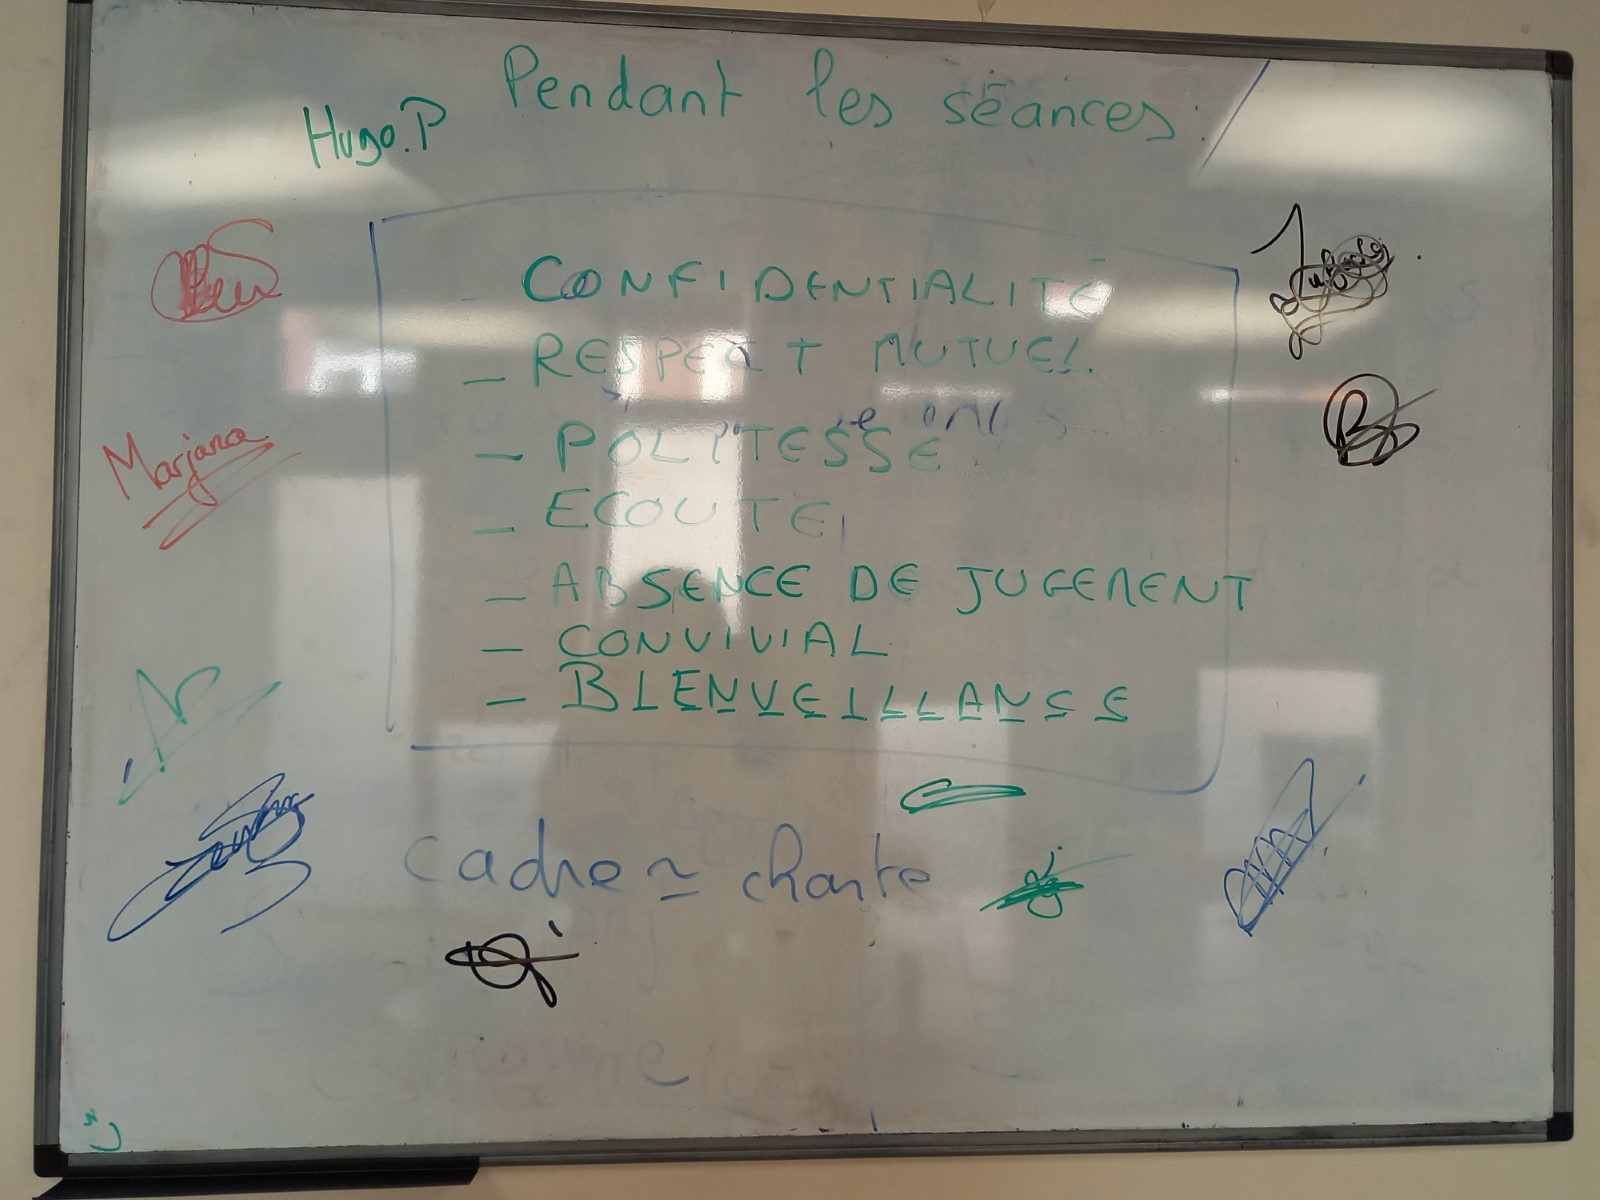 Pendant les séances:
Hugo.P
CONFIDENTIALITÉ
_ RESPECT MUTUEL
_ POLITESSE
_ ECOUTE
_ ABSENCE DE JUGEMENT
_ CONVIVIAL
_ BIENVEILLANCE
Marjana
cadre ≃ charte